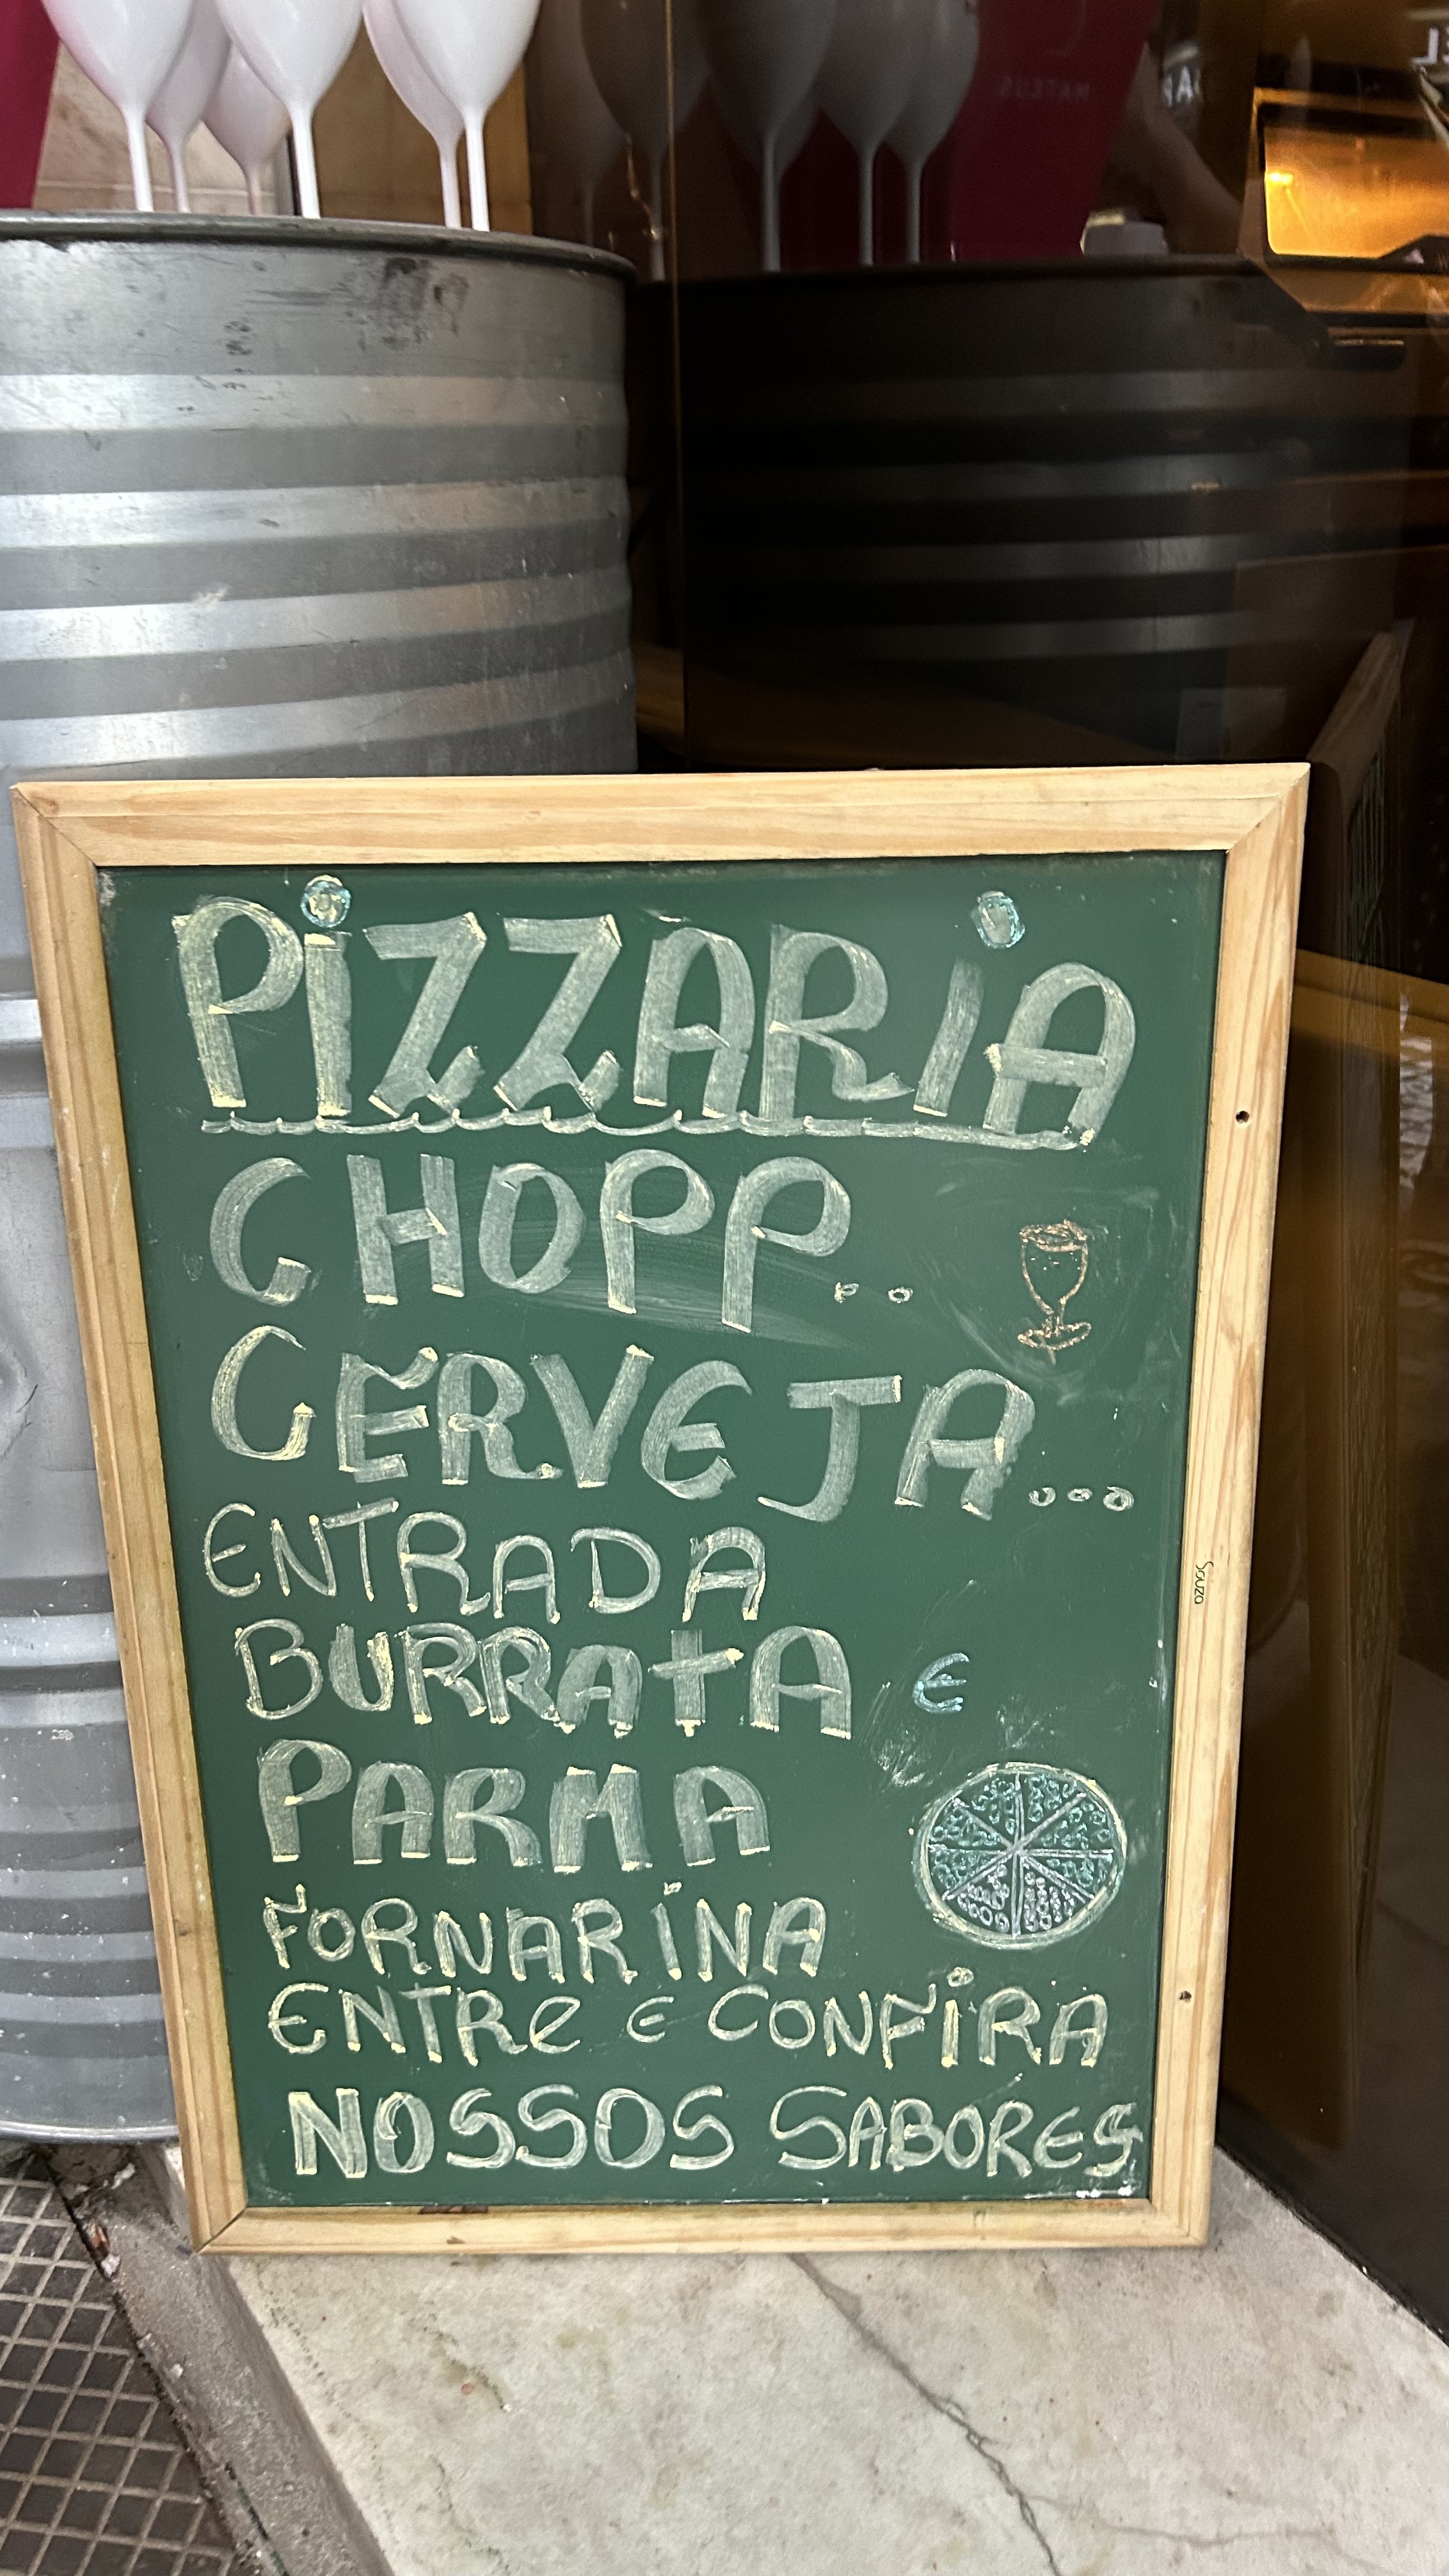 MATEUS
PiZZARiA
CHOPP..
CERVEJA...
ENTRADA
BURRATA E
PARMA
FORNARiNA
ENTRe E CONFiRA
NOSSOS SABORES
Souza